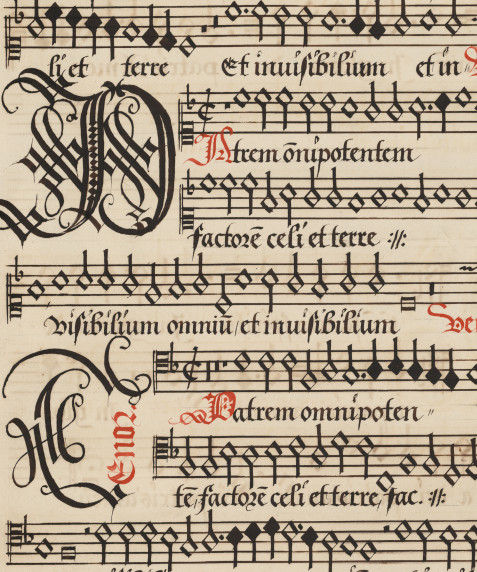 li et terre Et inuisibilium et in
Patrem om̄ipotentem
factorē celi et terre :||:
visibilium omniū, et inuisibilium
Tenor.
Patrem omnipoten"
tē, factorē celi et terre, fac. :||: